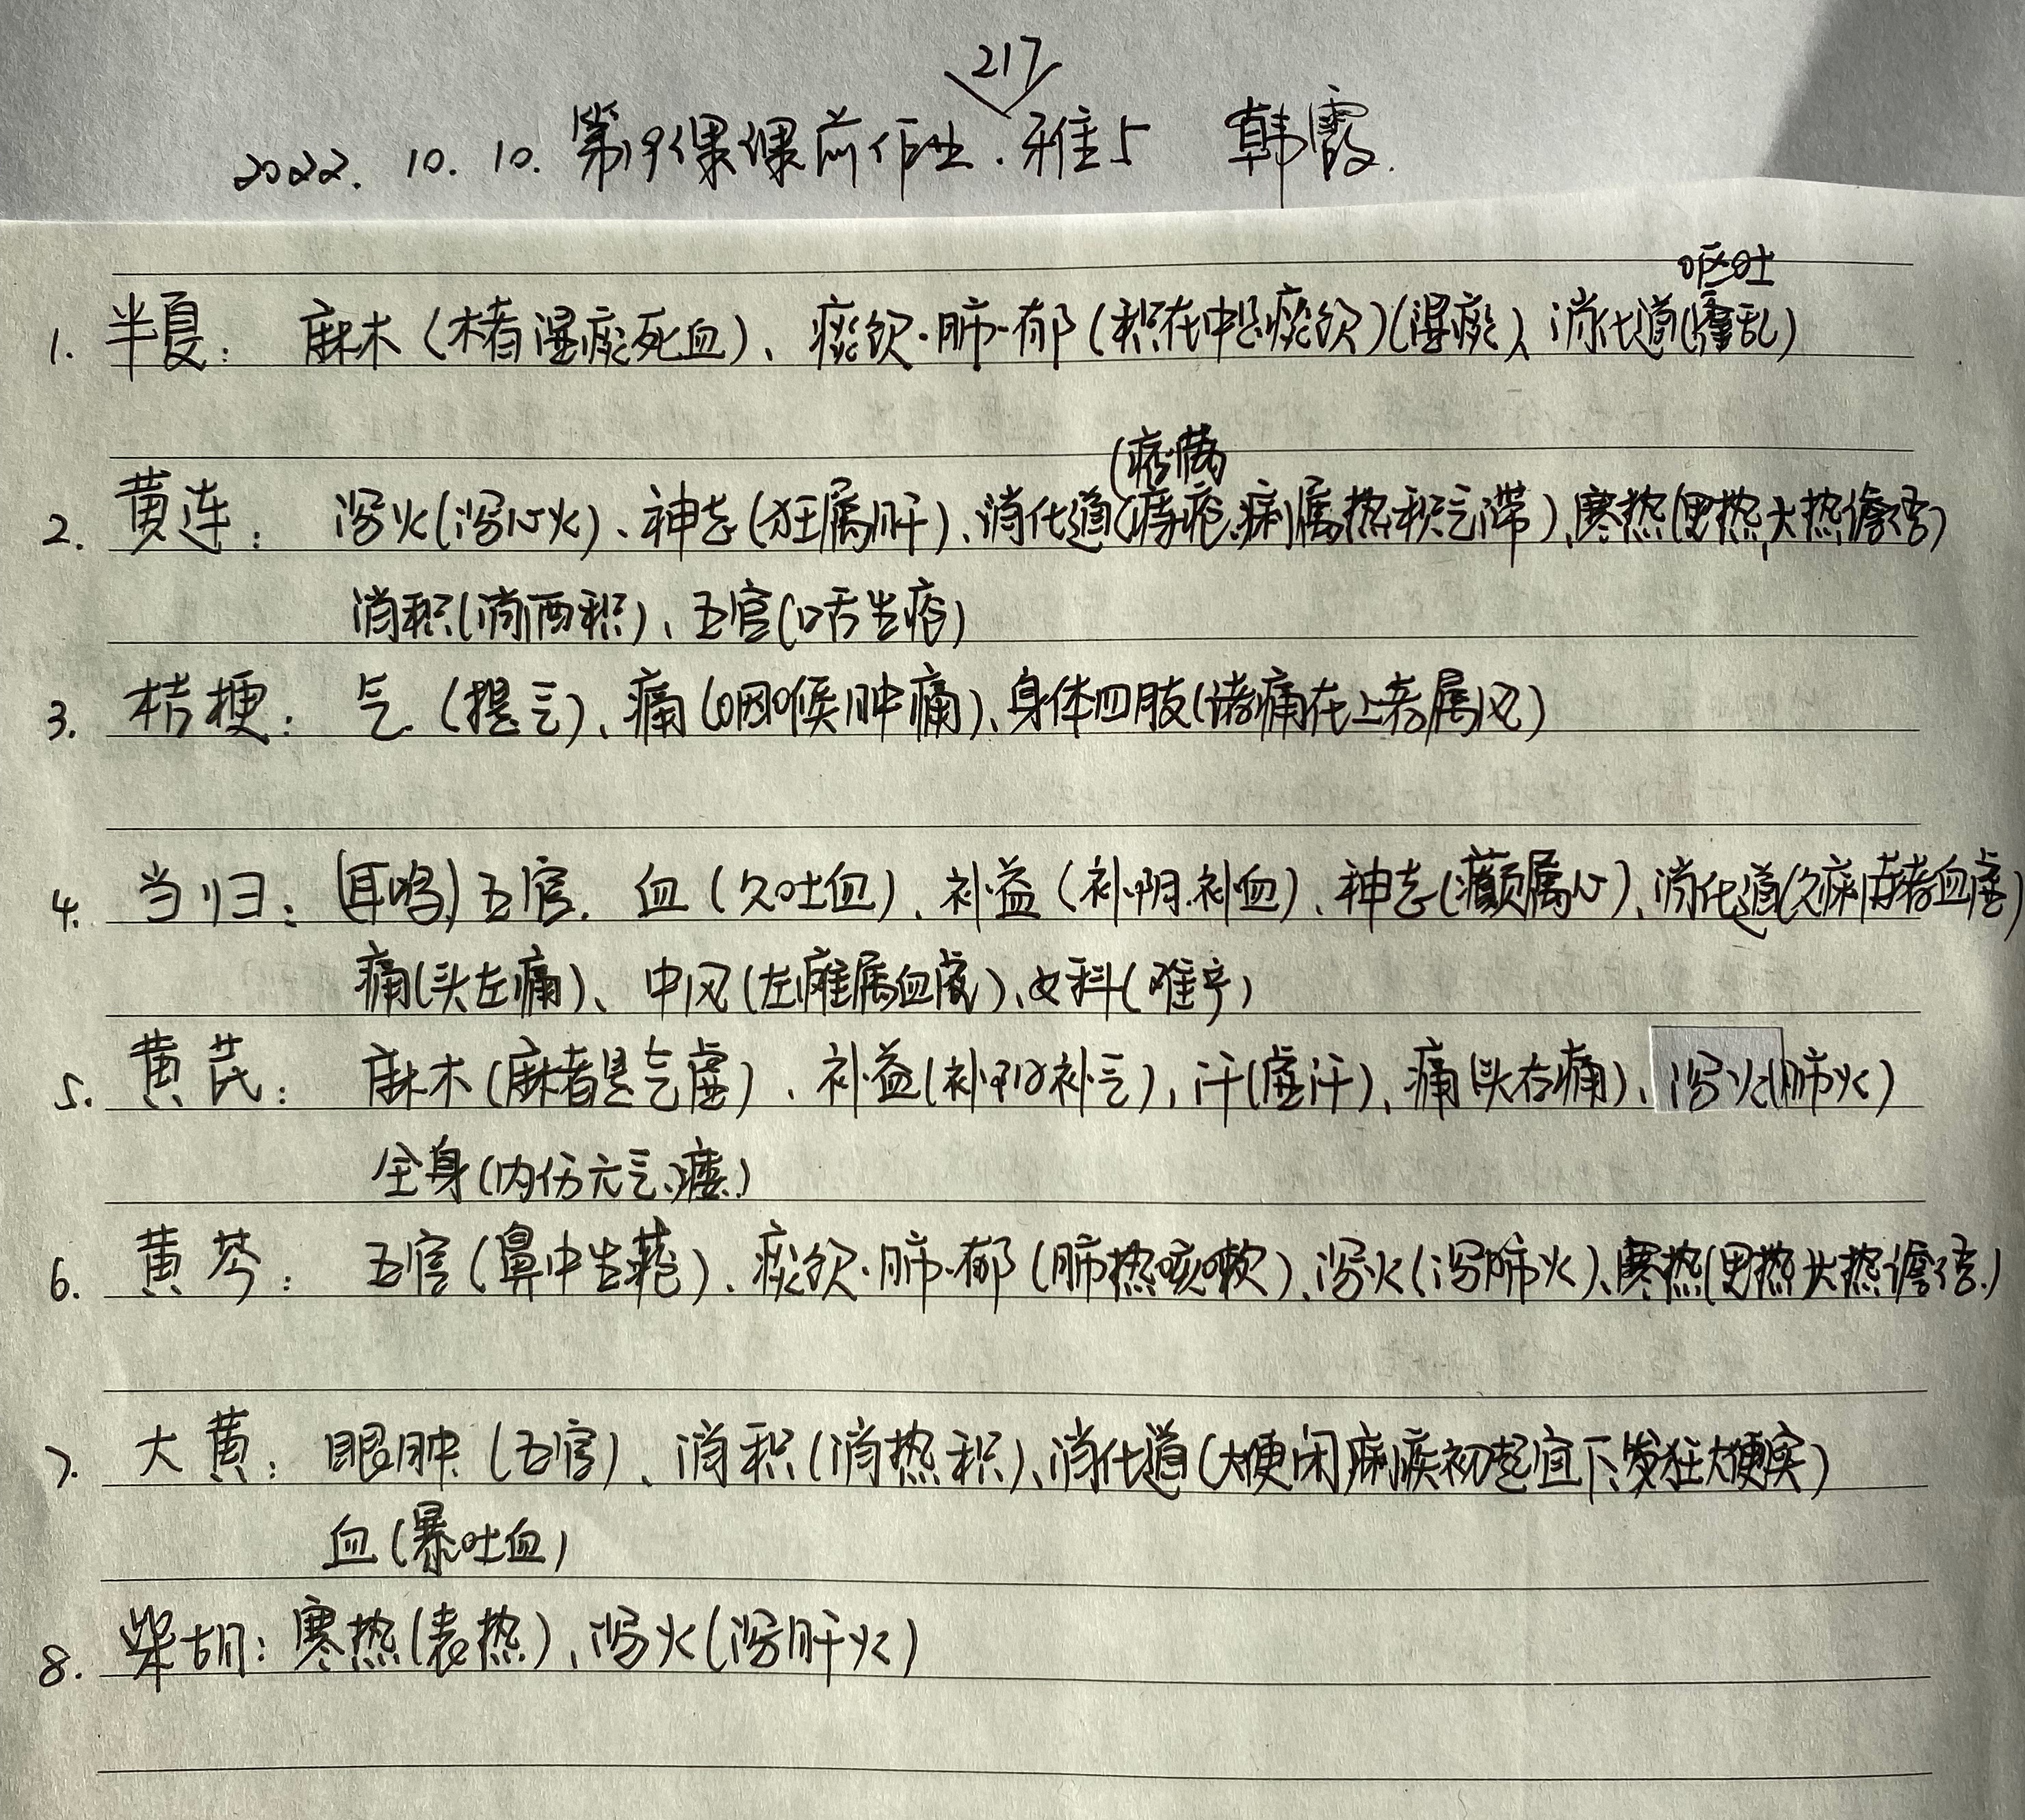 217
2022. 10. 10. 第19课课前作业. 雅5 韩霞.
呕吐
1. 半夏: 麻木(木者湿痰死血)、痰饮·肺·郁(积在中焦痰饮)(湿痰)、消化道(霍乱)
2. 黄连: 泻火(泻心火)、神志(狂属肝)、消化道(痔疮.痢属热积气滞)、寒热(里热,大热谵语)
消积(消酒积)、五官(口舌生疮)
3. 桔梗: 气(提气)、痛(咽喉肿痛)、身体四肢(诸痛在上者属风)
4. 当归: (耳鸣)五官. 血(久吐血)、补益(补阴.补血)、神志(癫属心)、消化道(久痢者血虚)
痛(头左痛)、中风(左瘫属血虚)、女科(难产)
5. 黄芪: 麻木(麻者是气虚)、补益(补阳补气),汗(虚汗)、痛(头右痛)、泻火(肺火)
全身(内伤元气虚)
6. 黄芩: 五官(鼻中生疮)、痰饮·肺·郁(肺热咳嗽)、泻火(泻肺火)、寒热(里热大热谵语.)
7. 大黄: 眼肿(五官)、消积(消热积)、消化道(大便闭痢疾初起宜下、发狂大便实)
血(暴吐血)
8. 柴胡: 寒热(表热)、泻火(泻肝火)